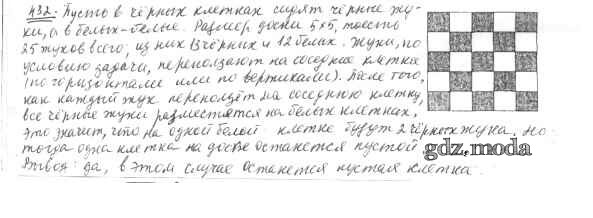 432. Пусть в чёрных клетках сидят чёрные жу-
ки, а в белых-белые. Размер доски 5x5, тоесть
25 жуков всего, из них 13 чёрных и 12 белых. Жуки, по
условию задачи, переползают на соседние клетки
(по горизонтали или по вертикали). После того,
как каждый жук переползёт на соседнюю клетку,
все чёрные жуки разместятся на белых клетках,
это значит, что на одной белой клетке будут 2 чёрных жука. Но
тогда одна клетка на доске останется пустой
gdz.moda
Ответ: да, в этом случае останется пустая клетка.